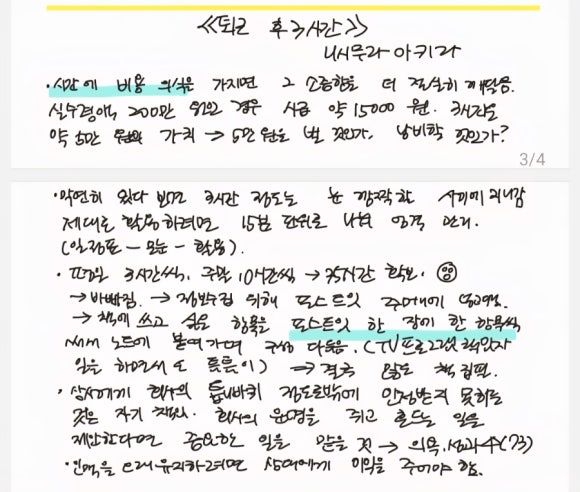 ≪퇴근 후 3시간≫
니시무라 아키라
· 시간에 비용 의식을 가지면 그 소중함을 더 절실히 깨달음.
실수령액 200만 원인 경우 시급 약 15000원. 3시간은
약 5만 원의 가치 → 5만 원을 벌 것인가, 낭비할 것인가?
3/4
· 막연히 있다 보면 3시간 정도는 눈 깜짝할 사이에 지나감
제대로 활용하려면 15분 단위로 나눠 엄격 관리.
(일정표 - 모눈 - 활용).
· 평일 3시간씩, 주말 10시간씩 → 35시간 확보.
→ 바빠짐. → 정보수집 위해 포스트잇 주머니에 넣고다님.
→ 책에 쓰고 싶은 항목을 포스트잇 한 장에 한 항목씩
써서 노트에 붙여가며 구성 다듬음. (TV프로그램 책임자
일을 하면서도 틈틈이) → 결국 책 집필.
· 상사에게 회사의 톱니바퀴 정도로밖에 인정받지 못하는
것은 자기 책임. 회사의 운명을 쥐고 흔드는 일을
제안한다면 중요한 일을 맡을 것 → 의욕, 성과 수 (73)
· 인맥을 오래 유지하려면 상대에게 이익을 주어야 함.